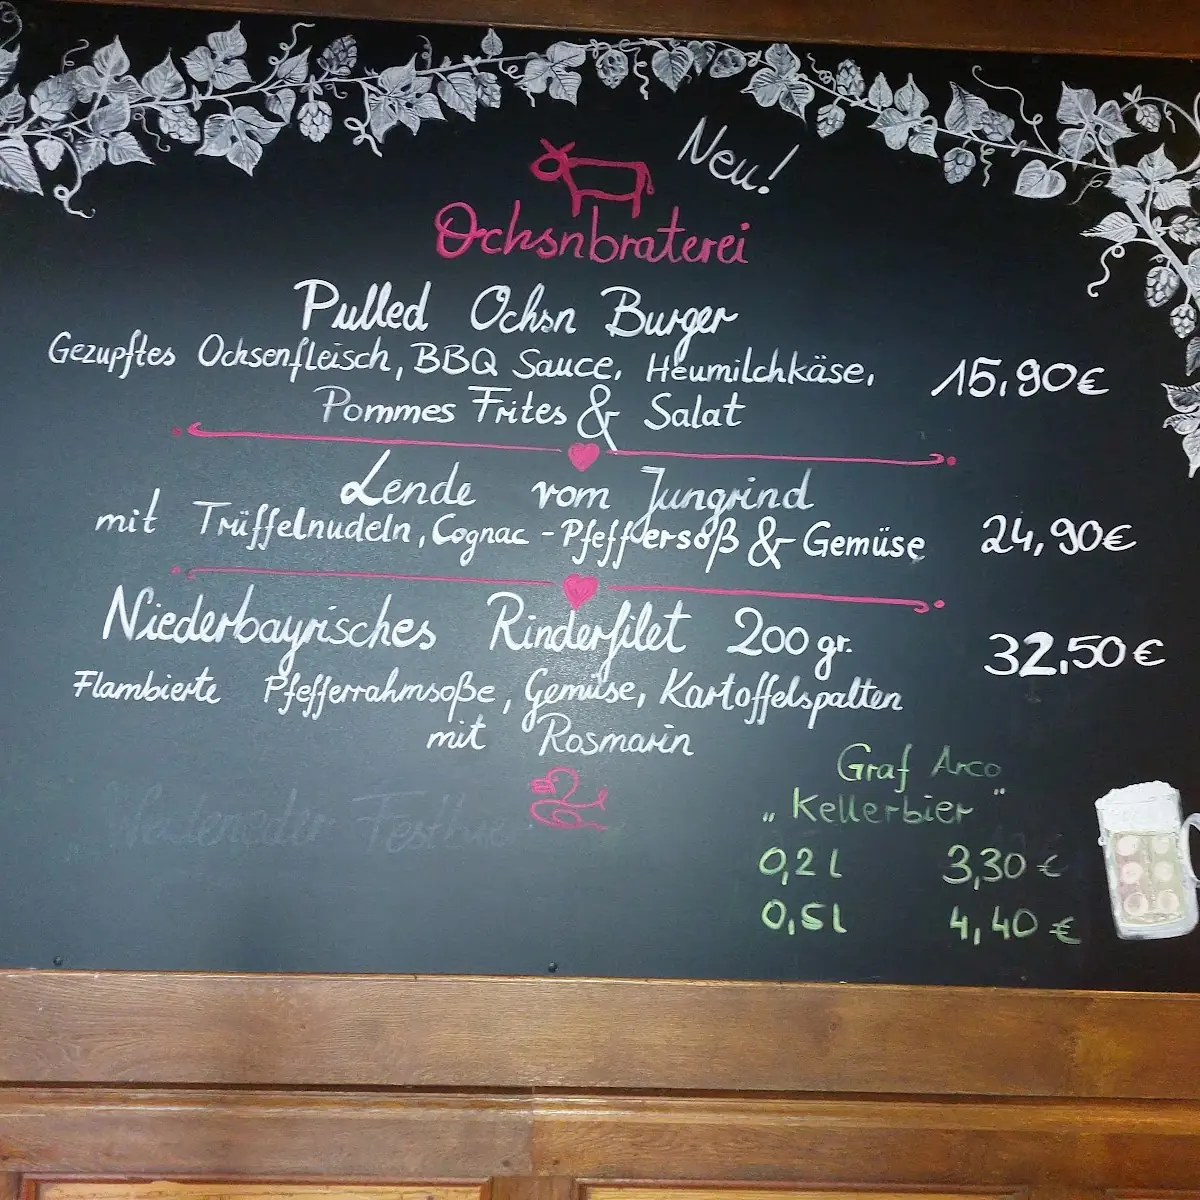 Neu!
Ochsnbraterei
Pulled Ochsn Burger
Gezupftes Ochsenfleisch, BBQ Sauce, Heumilchkäse,
15,90€
Pommes Frites & Salat
Lende vom Jungrind
mit Trüffelnudeln, Cognac-Pfeffersoß & Gemüse
24,90€
Niederbayrisches Rinderfilet 200gr.
32,50€
Flambierte Pfefferrahmsoße, Gemüse, Kartoffelspalten
mit Rosmarin
Graf Arco
„Kellerbier"
0,2l 3,30€
0,5l 4,40€